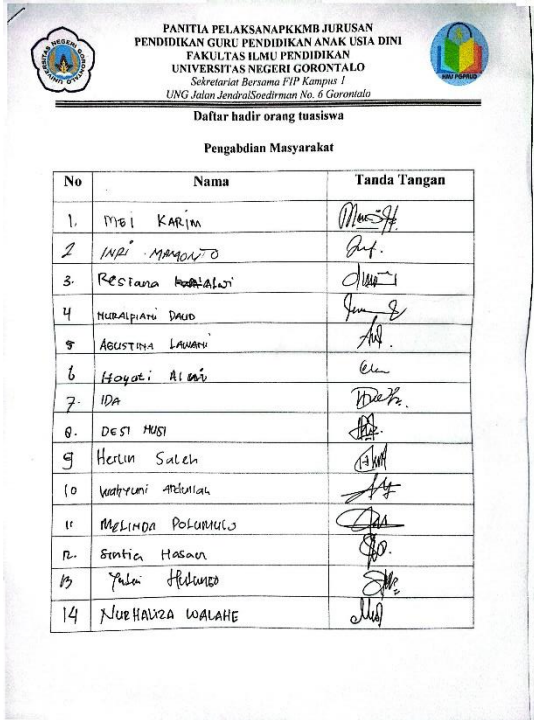 PANITIA PELAKSANAPKKMB JURUSAN
PENDIDIKAN GURU PENDIDIKAN ANAK USIA DINI
FAKULTAS ILMU PENDIDIKAN
UNIVERSITAS NEGERI GORONTALO
Sekretariat Bersama FIP Kampus 1
UNG Jalan JendralSoedirman No. 6 Gorontalo
Daftar hadir orang tuasiswa
Pengabdian Masyarakat
No Nama Tanda Tangan
1. MEI KARIM
2 INRI MAMONTO
3. Resiana
4 NURALPIANI DAUD
5 AGUSTINA LAWANI
6 Hayati Alwi
7. IDA
8. DESI MUSI
9 Herlin Saleh
10 Wahyuni Abdullah
11 MELINDA POLUMULO
12. Sintia Hasan
13
14 NURHALIZA WALAHE